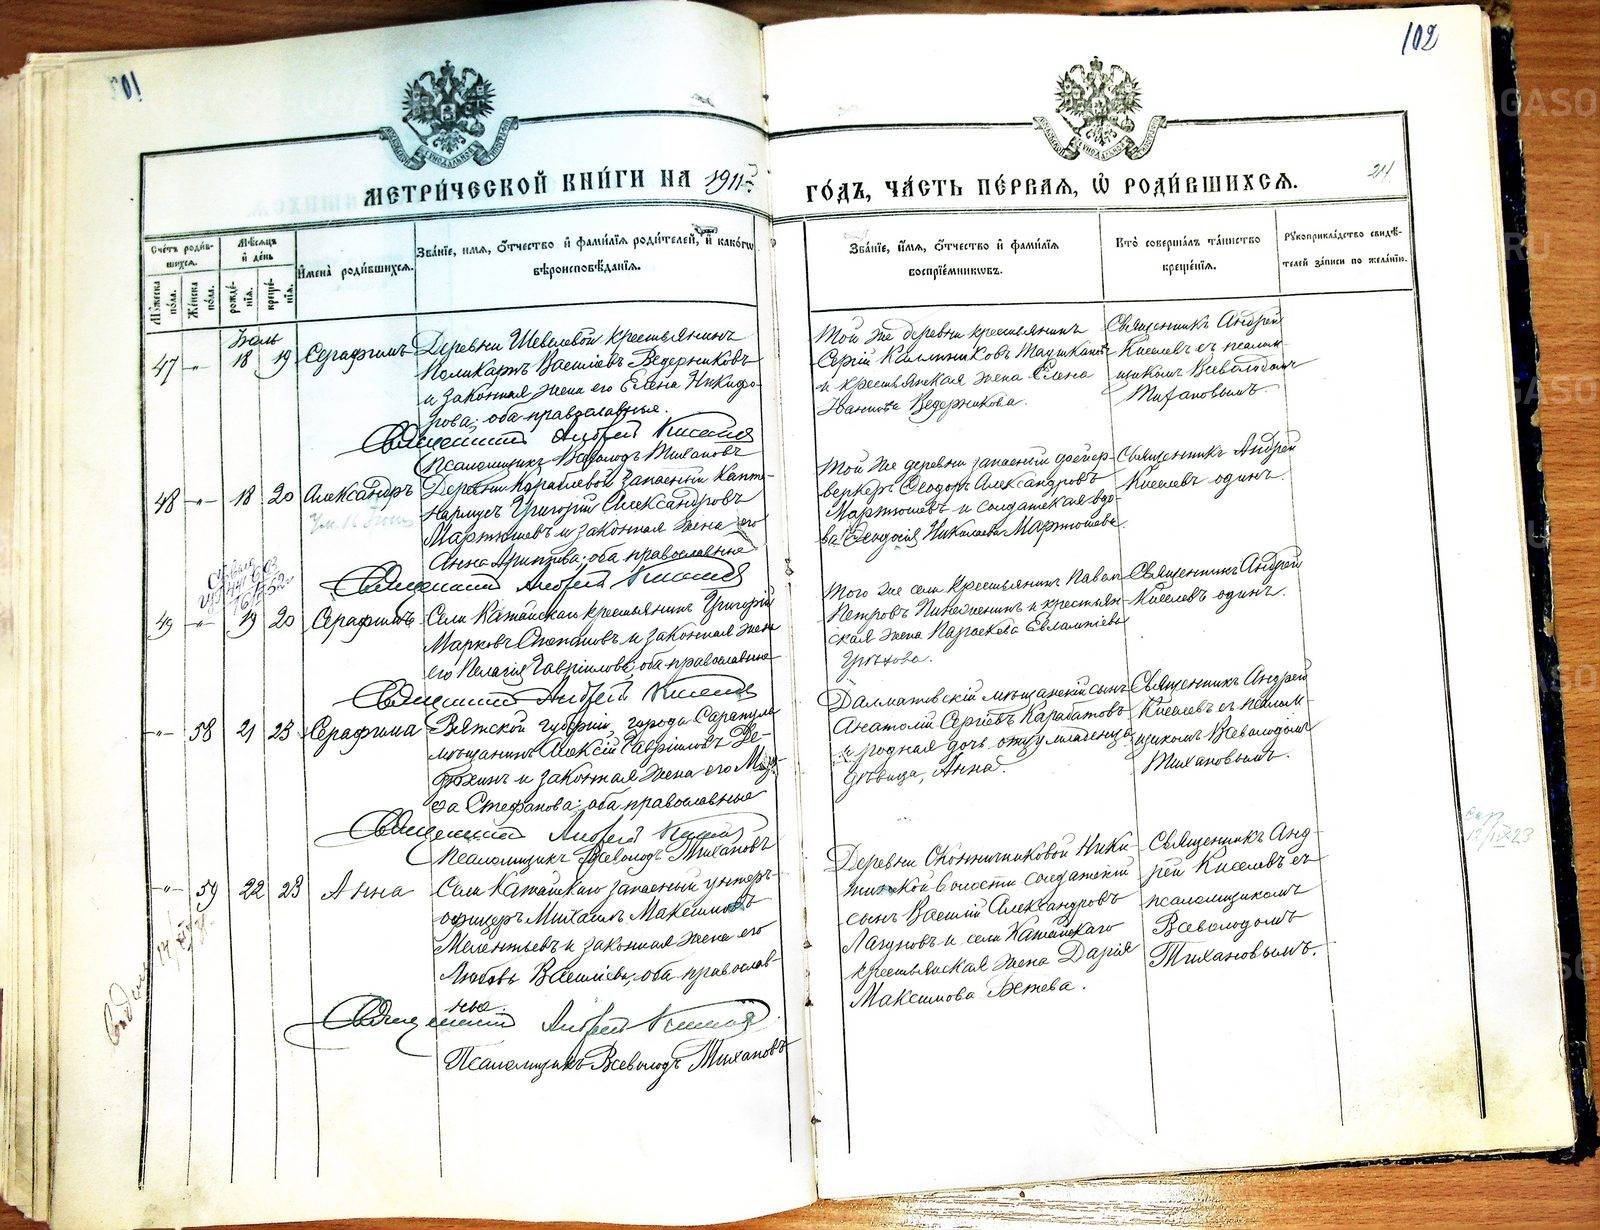 101
102
МЕТРИ́ЧЕСКОЙ КНИ́ГИ НА 1911 й
ГО́ДЪ, ЧА́СТЬ ПЕ́РВАЯ, Ѡ҆ РОДИ́ВШИХСЯ.
211
Сче́тъ роди́в-
шихся.
Мѣ́сяцъ
и҆ де́нь
И҆мена̀ роди́вшихся.
Зва́нїе, и҆́мя, ѻ҆́тчество и҆ фами́лїя роди́телей, и҆ како́гѡ
вѣроисповѣ́данїя.
Му́жеска
по́ла.
Же́нска
по́ла.
рожде́-
нїя.
креще́-
нїя.
Зва́нїе, и҆́мя, ѻ҆́тчество и҆ фами́лїя
воспрїе́мникѡвъ.
Кто̀ соверша́лъ та́инство
креще́нїя.
Рꙋкоприкла́дство свидѣ́-
телей за́писи по жела́нїю.
Іюль
47 -"- 18 19 Серафимъ
Деревни Шевелевой крестьянинъ
Поликарпъ Васильевъ Ведерниковъ
и законная жена его Елена Никифо-
рова; оба православные.
Священникъ Андрей Киселевъ
Псаломщикъ Всеволодъ Тихановъ
Той же деревни крестьянинъ
Сергій Калинниковъ
и крестьянская жена Елена
Иванова Ведерникова.
Священникъ Андрей
Киселевъ съ псалом-
щикомъ Всеволодомъ
Тихановымъ.
48 -"- 18 20 Александръ
Деревни запасный капте-
нармусъ Григорій Александровъ
Мартюшевъ и законная жена его
Анна; оба православные
Священникъ Андрей Киселевъ
Той же деревни запасный фейер-
веркеръ Ѳеодоръ Александровъ
Мартюшевъ и солдатская вдо-
ва Ѳеодосія Николаева Мартюшева.
Священникъ Андрей
Киселевъ одинъ.
49 -"- 19 20 Серафимъ
Села Катайскаго крестьянинъ Григорій
Марковъ и законная жена
его Пелагія Гавріилова; оба православные
Священникъ Андрей Киселевъ
Того же села крестьянинъ Павелъ
Петровъ и крестьян-
ская жена Параскева Евлампіева
Грѣхова.
Священникъ Андрей
Киселевъ одинъ.
-"- 58 21 23 Серафима
Вятской губерніи, города Сарапула
мѣщанинъ Алексій Гавріиловъ Де-
и законная жена его
Стефанова; оба православные
Священникъ Андрей Киселевъ
Псаломщикъ Всеволодъ Тихановъ
Далматовскій мѣщанскій сынъ
Анатолій Сергіевъ Карабатовъ
и родная дочь отцу младенца
дѣвица, Анна.
Священникъ Андрей
Киселевъ съ псалом-
щикомъ Всеволодомъ
Тихановымъ.
-"- 59 22 23 Анна
Села Катайскаго запасный унтеръ-
офицеръ Михаилъ Максимовъ
Мелентьевъ и законная жена его
Любовь Васильева, оба православ-
ные
Священникъ Андрей Киселевъ
Псаломщикъ Всеволодъ Тихановъ
Деревни Оконничниковой Ники-
волости солдатскій
сынъ Василій Александровъ
Лагуновъ и села Катайскаго
крестьянская жена Дарія
Максимова Бѣжева.
Священникъ Анд-
рей Киселевъ съ
псаломщикомъ
Всеволодомъ
Тихановымъ.
GASO
RU